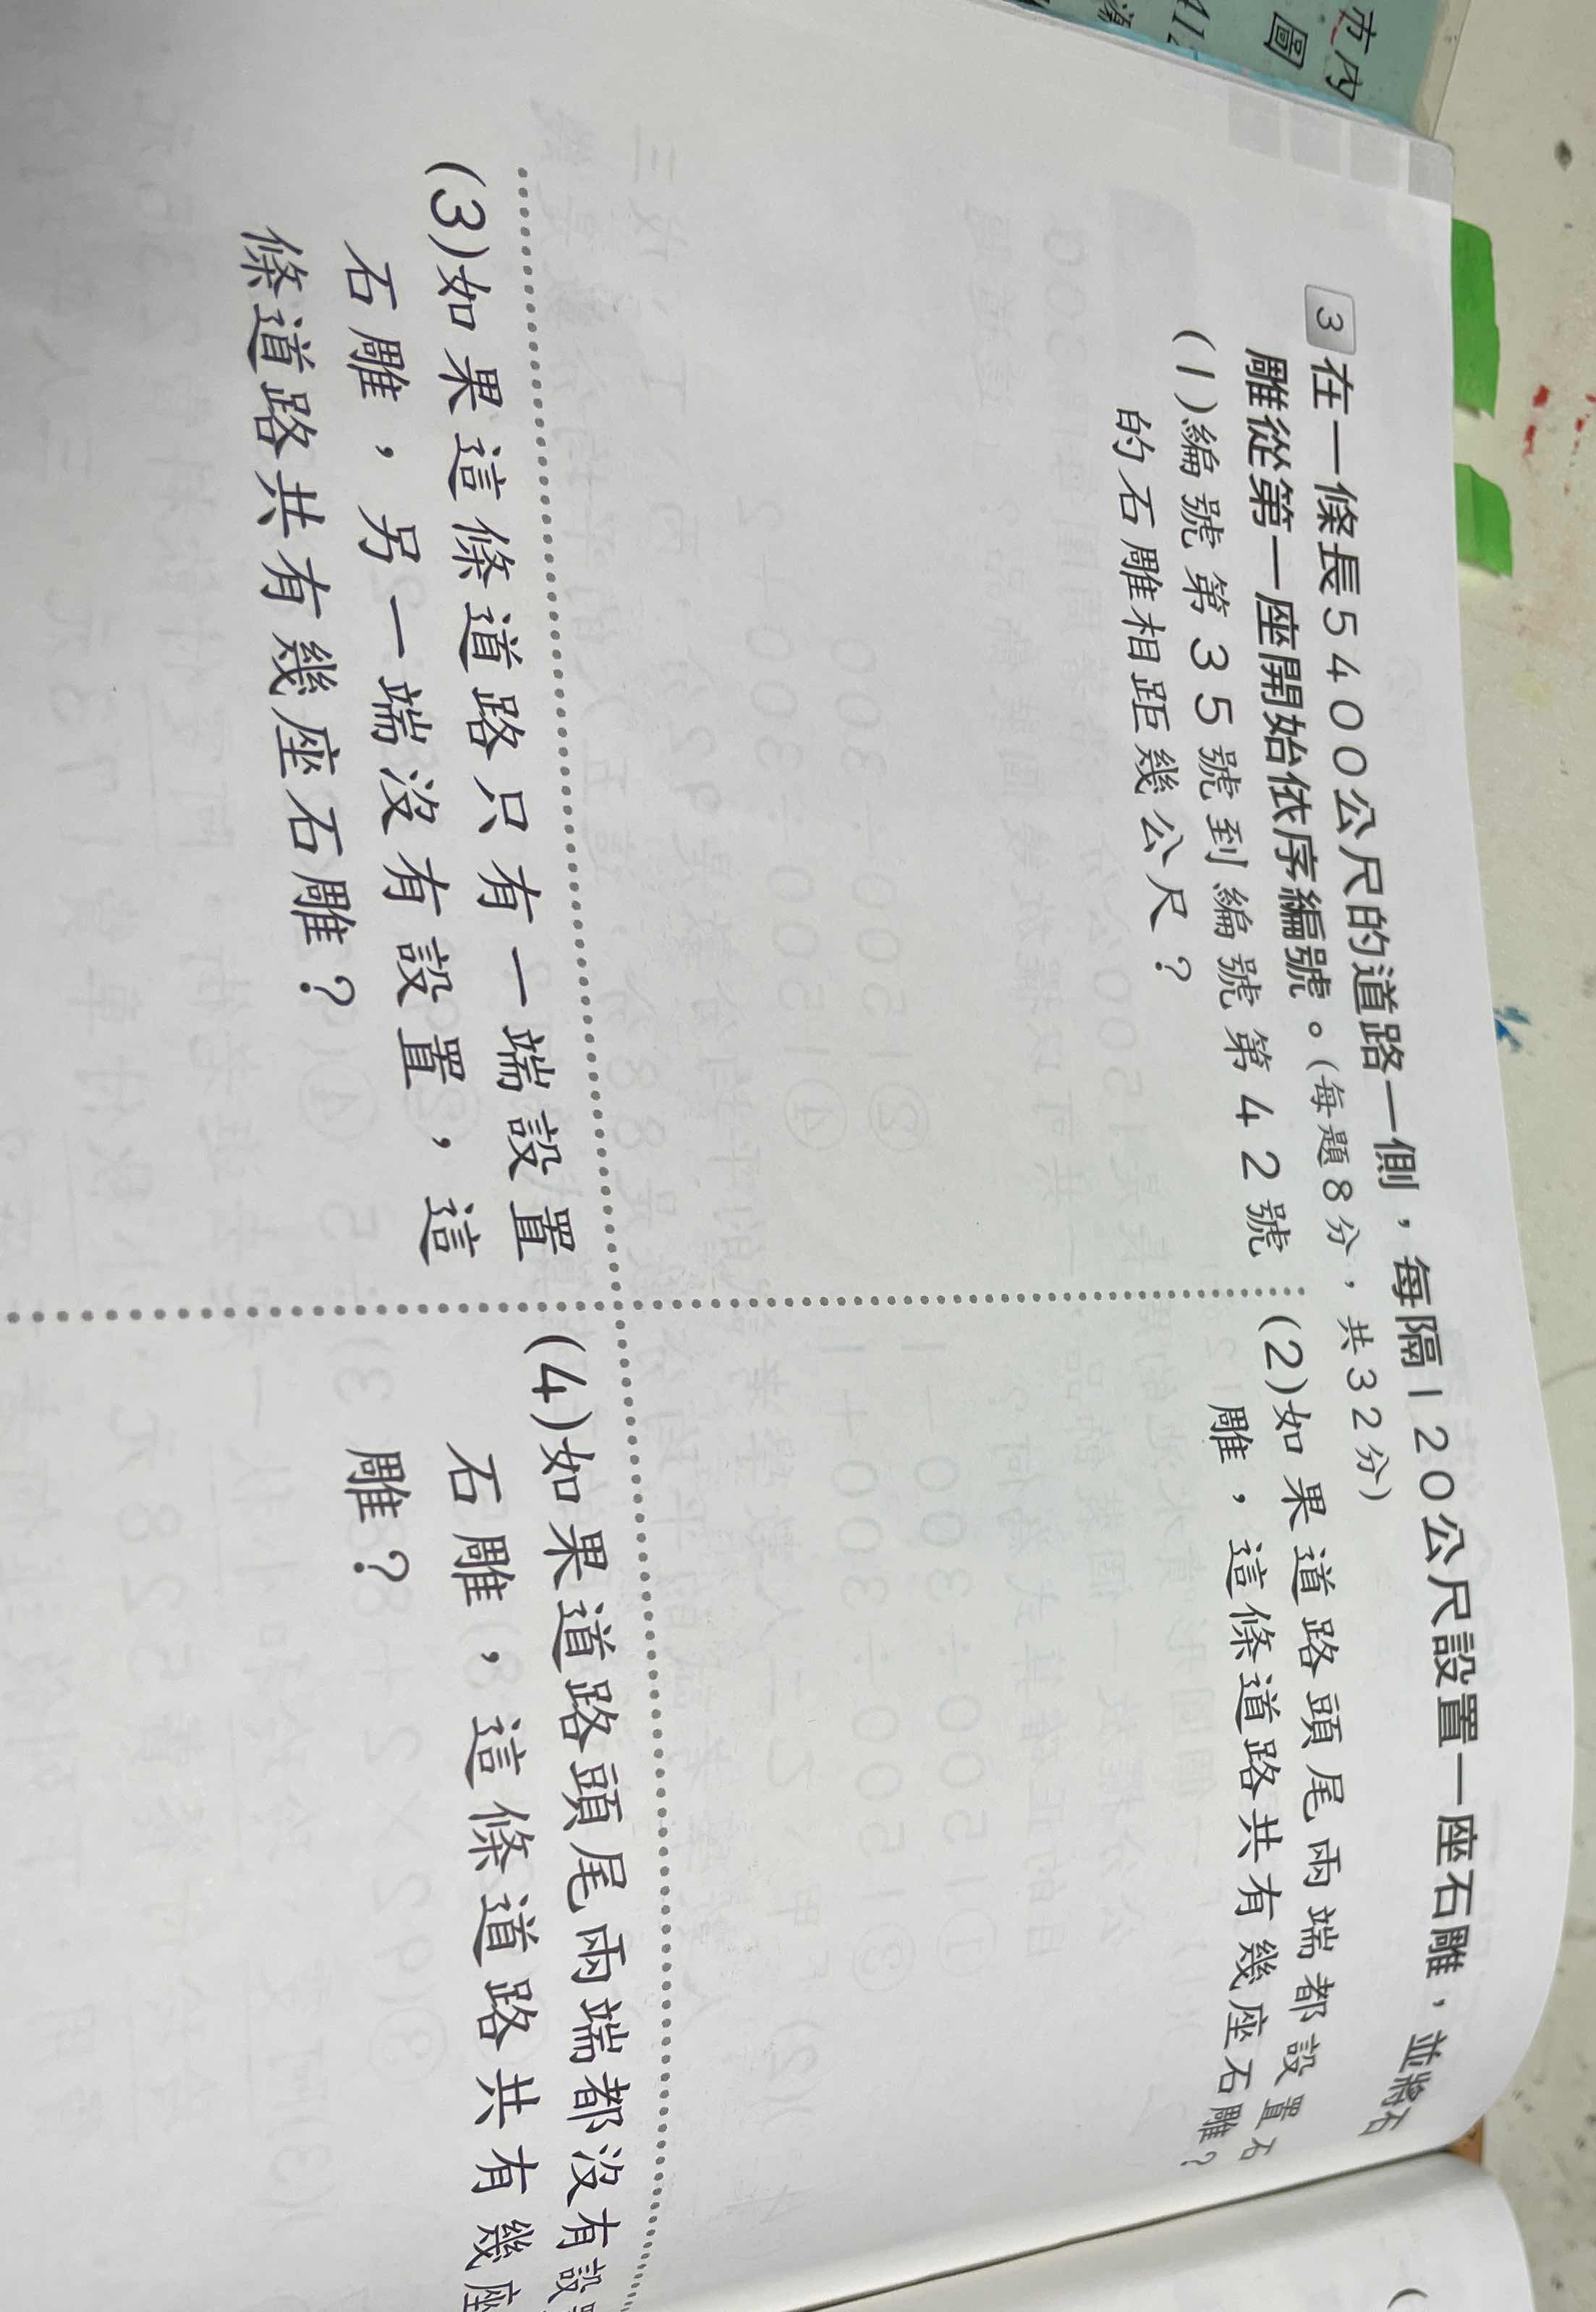 市內
圖
3 在一條長5400公尺的道路一側，每隔120公尺設置一座石雕，並將石
雕從第一座開始依序編號。(每題8分，共32分)
(1)編號第35號到編號第42號
的石雕相距幾公尺？
(2)如果道路頭尾兩端都設置石
雕，這條道路共有幾座石雕？
(3)如果這條道路只有一端設置
石雕，另一端沒有設置，這
條道路共有幾座石雕？
(4)如果道路頭尾兩端都沒有設
石雕，這條道路共有幾座
雕？